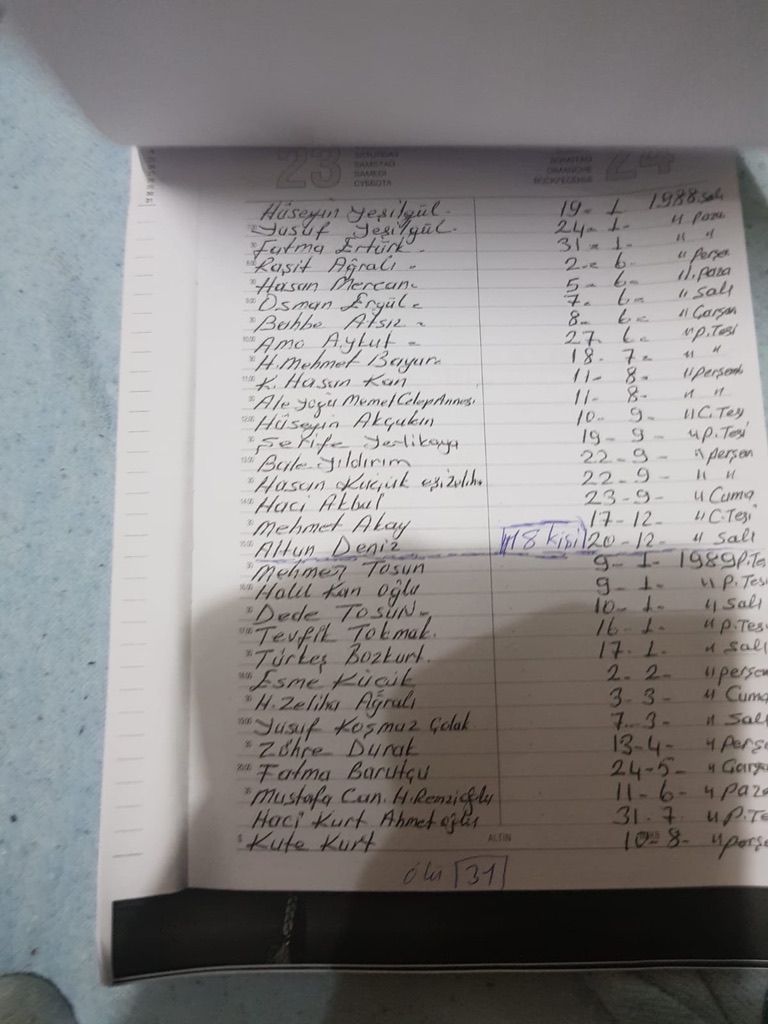 23 SATURDAY SAMSTAG SAMEDI СУББОТА
24 SONNTAG DIMANCHE ВОСКРЕСЕНЬЕ
Hüseyin Yeşilgül. 19- 1 1988 Salı
Yusuf Yeşilgül. 24- 1- " paza
Fatma Ertürk. 31- 1- " "
Raşit Ağralı. 2- 6- " perşe
Hasan Mercan. 5- 6- " paza
Osman Ergül. 7- 6- " Salı
Bahbe Atsız 8- 6- " Çarşan
Amo Aykut 27. 6- " P.Tesi
H. Mehmet Bayım 18. 7- " "
K. Hasan Kan 11- 8- " perşemb
Ale Memet Celep Annesi 11- 8- " "
Hüseyin 10- 9- " C.Tes
Şerife Yerlikaya 19- 9- " P.Tesi
Bule Yıldırım 22-9- " perşen
Hasan Küçük eşi 22-9- " "
Haci Akbal 23-9- " Cuma
Mehmet Akay 17-12- " C.Tesi
Altun Deniz 18 kişi 20-12- " Salı
Mehmet Tosun 9- 1- 1989 P.Te
Halil Kan oğlu 9- 1- " P.Tes
Dede TOSUN- 10- 1- " Salı
Tevfik Tokmak. 16- 1- " P.Tes
Türkeş Bozkurt. 17- 1. " Salı
Esme Küçük 2- 2- " perşem
H. Zeliha Ağralı 3- 3- " Cuma
Yusuf Koşmaz Çolak 7- 3- " Salı
Zöhre Durak 13-4- " perşe
Fatma Barutçu 24-5- " Çarşa
Mustafa Can. H. Remzioğlu 11- 6- " paza
Haci Kurt Ahmet oğlu 31. 7. " P.Te
Kute Kurt 10- 8- " perşe
ALTIN
ölü 31